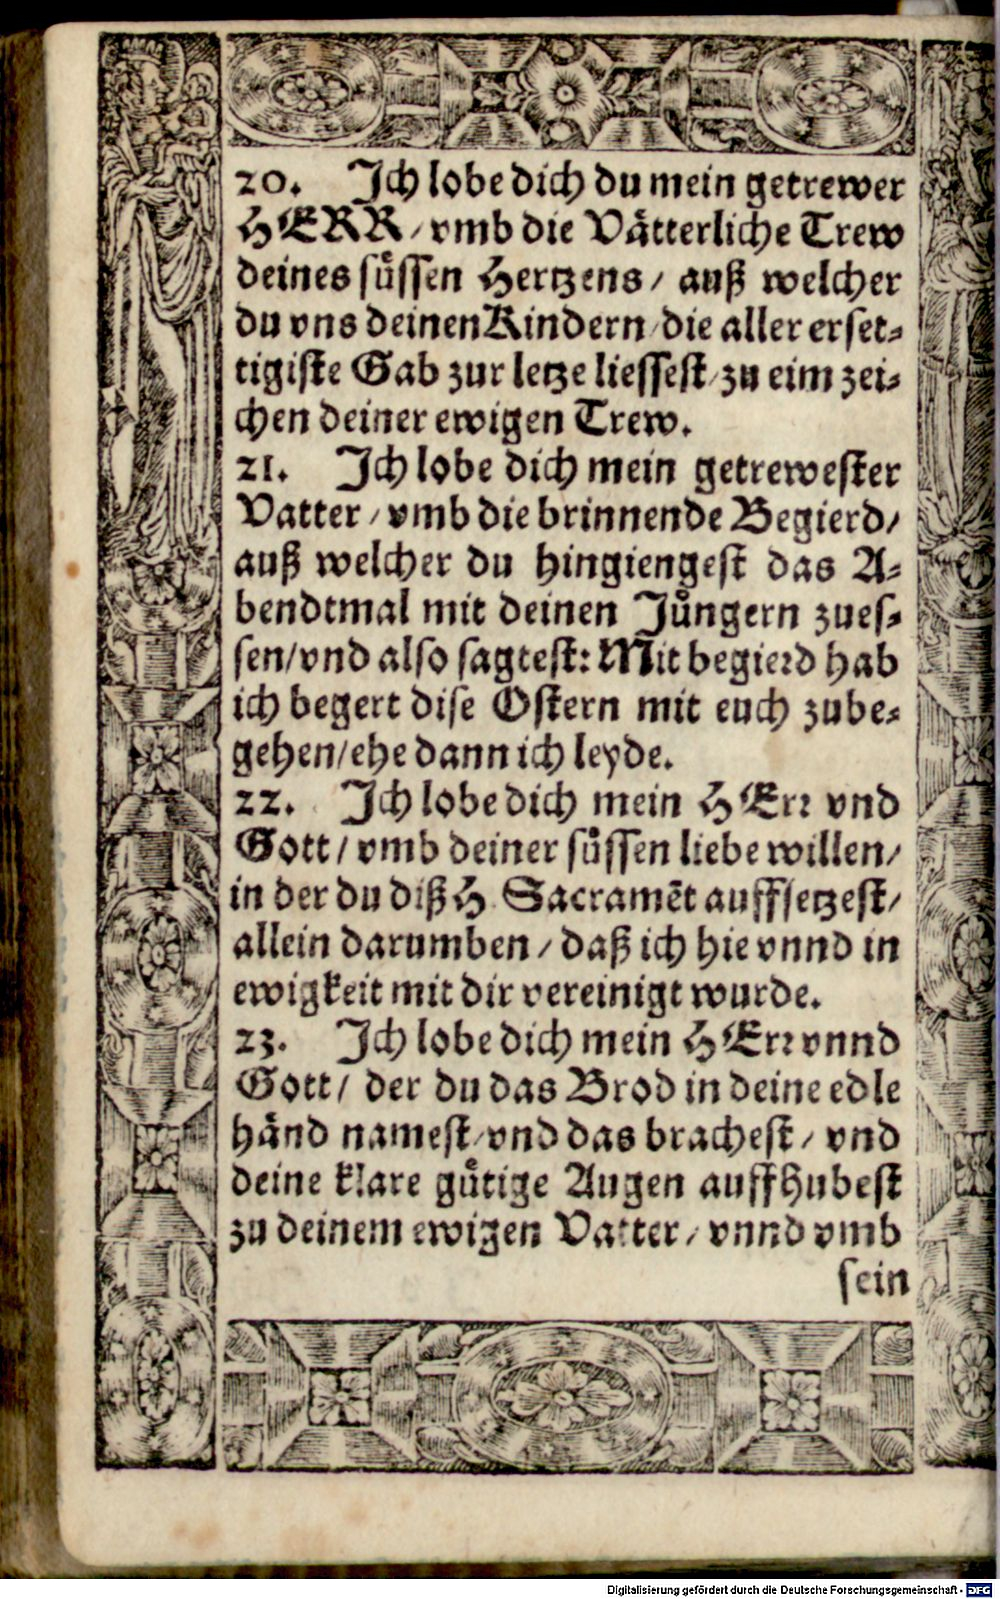 20. Ich lobe dich du mein getrewer
HERR/ vmb die Vätterliche Trew
deines süssen Hertzens/ auß welcher
du vns deinen Kindern/ die aller erset-
tigiste Gab zur letze liessest/ zu eim zei-
chen deiner ewigen Trew.
21. Ich lobe dich mein getrewester
Vatter/ vmb die brinnende Begierd/
auß welcher du hingiengest das A-
bendtmal mit deinen Jüngern zues-
sen/ vnd also sagtest: Mit begierd hab
ich begert dise Ostern mit euch zube-
gehen/ ehe dann ich leyde.
22. Ich lobe dich mein HErr vnd
Gott/ vmb deiner süssen liebe willen/
in der du diß H. Sacramēt auffsetzest/
allein darumben/ daß ich hie vnnd in
ewigkeit mit dir vereinigt wurde.
23. Ich lobe dich mein HErr vnnd
Gott/ der du das Brod in deine edle
händ namest/ vnd das brachest/ vnd
deine klare gütige Augen auffhubest
zu deinem ewigen Vatter/ vnnd vmb
sein
Digitalisierung gefördert durch die Deutsche Forschungsgemeinschaft - DFG